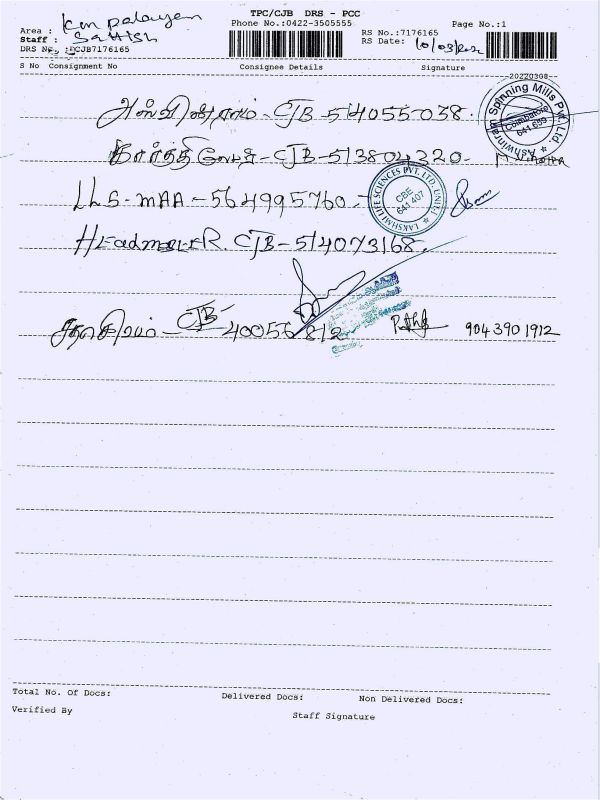 TPC/CJB DRS - PCC
Phone No.:0422-3505555
Page No.:1
Area : k.m palayam
Staff : Sathish
DRS No. :DCJB7176165
RS No.:7176165
RS Date: 10/03/2022
S No Consignment No Consignee Details Signature
20220308
அஸ்வின்ராம் - CJB - 514055038.
Ashwinram Spinning Mills Pvt. Ltd.
Coimbatore
கார்த்தி - CJB - 513804320-
LLS - MAA - 564995760 -
LAKSHMI LIFE SCIENCES PVT. LTD.
CBE
641 407
Headmaster. CJB - 514073168.
CJB
40056812
9043901912
Total No. Of Docs: Delivered Docs: Non Delivered Docs:
Verified By Staff Signature